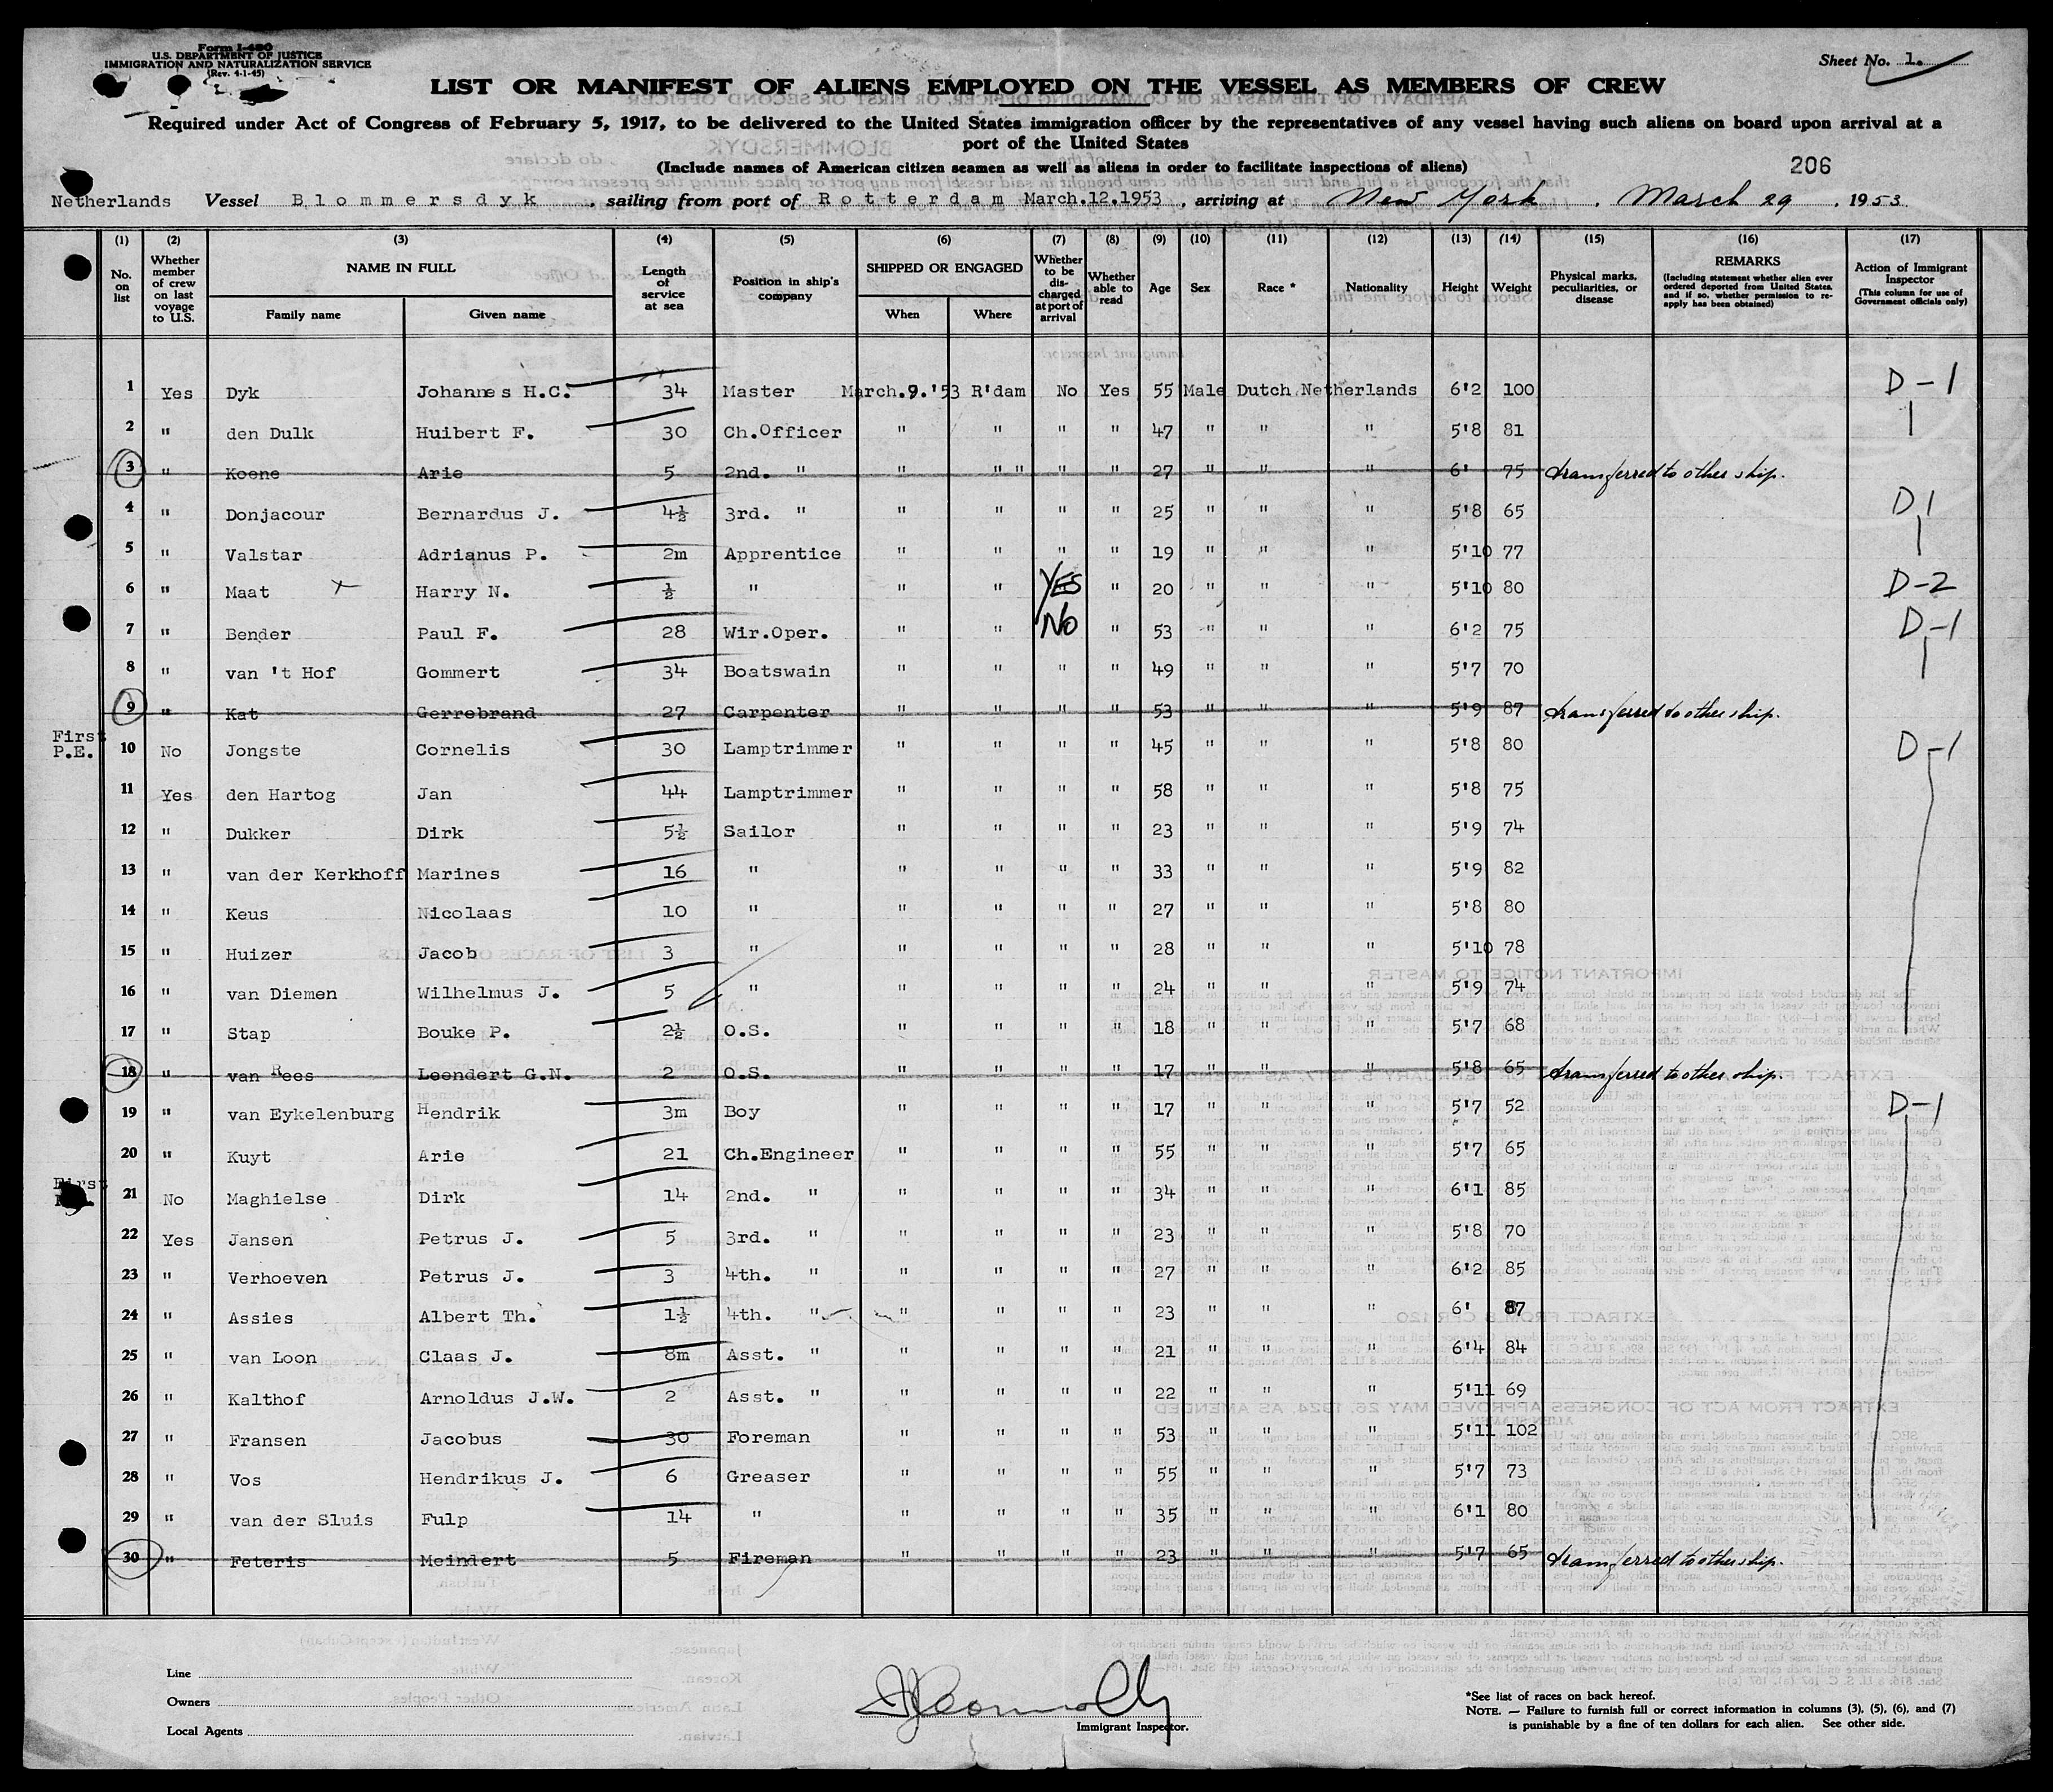 Form I-480
U.S. DEPARTMENT OF JUSTICE
IMMIGRATION AND NATURALIZATION SERVICE
(Rev. 4-1-45)
Sheet No. 1.
LIST OR MANIFEST OF ALIENS EMPLOYED ON THE VESSEL AS MEMBERS OF CREW
Required under Act of Congress of February 5, 1917, to be delivered to the United States immigration officer by the representatives of any vessel having such aliens on board upon arrival at a
port of the United States
(Include names of American citizen seamen as well as aliens in order to facilitate inspections of aliens)
206
Netherlands Vessel Blommersdyk, sailing from port of Rotterdam March.12.1953, arriving at New York, March 29, 1953
(1) (2) (3) (4) (5) (6) (7) (8) (9) (10) (11) (12) (13) (14) (15) (16) (17)
No. on list
Whether member of crew on last voyage to U.S.
NAME IN FULL
Family name Given name
Length of service at sea
Position in ship's company
SHIPPED OR ENGAGED
When Where
Whether to be discharged at port of arrival
Whether able to read
Age
Sex
Race *
Nationality
Height
Weight
Physical marks, peculiarities, or disease
REMARKS
(Including statement whether alien ever ordered deported from United States, and if so, whether permission to reapply has been obtained)
Action of Immigrant Inspector
(This column for use of Government officials only)
1 Yes Dyk Johannes H.C. 34 Master March.9.'53 R'dam No Yes 55 Male Dutch Netherlands 6'2 100 D-1
2 " den Dulk Huibert F. 30 Ch.Officer " " " " 47 " " " 5'8 81
3 " Koene Arie 5 2nd. " " " " " " 27 " " " 6' 75 transferred to other ship.
4 " Donjacour Bernardus J. 4½ 3rd. " " " " " 25 " " " 5'8 65 D1
5 " Valstar Adrianus P. 2m Apprentice " " " " 19 " " " 5'10 77
6 " Maat Harry N. ½ " " " YES " 20 " " " 5'10 80 D-2
7 " Bender Paul F. 28 Wir.Oper. " " No " 53 " " " 6'2 75 D-1
8 " van 't Hof Gommert 34 Boatswain " " " " 49 " " " 5'7 70
9 " Kat Gerrebrand 27 Carpenter " " " " 53 " " " 5'9 87 transferred to other ship.
First P.E. 10 No Jongste Cornelis 30 Lamptrimmer " " " " 45 " " " 5'8 80 D-1
11 Yes den Hartog Jan 44 Lamptrimmer " " " " 58 " " " 5'8 75
12 " Dukker Dirk 5½ Sailor " " " " 23 " " " 5'9 74
13 " van der Kerkhoff Marines 16 " " " " " 33 " " " 5'9 82
14 " Keus Nicolaas 10 " " " " " 27 " " " 5'8 80
15 " Huizer Jacob 3 " " " " " 28 " " " 5'10 78
16 " van Diemen Wilhelmus J. 5 " " " " " 24 " " " 5'9 74
17 " Stap Bouke P. 2½ O.S. " " " " 18 " " " 5'7 68
18 " van Rees Leendert G.N. 2 O.S. " " " " 17 " " " 5'8 65 transferred to other ship.
19 " van Eykelenburg Hendrik 3m Boy " " " " 17 " " " 5'7 52 D-1
20 " Kuyt Arie 21 Ch.Engineer " " " " 55 " " " 5'7 65
First 21 No Maghielse Dirk 14 2nd. " " " " " 34 " " " 6'1 85
22 Yes Jansen Petrus J. 5 3rd. " " " " " 23 " " " 5'8 70
23 " Verhoeven Petrus J. 3 4th. " " " " " 27 " " " 6'2 85
24 " Assies Albert Th. 1½ 4th. " " " " " 23 " " " 6' 87
25 " van Loon Claas J. 8m Asst. " " " " " 21 " " " 6'4 84
26 " Kalthof Arnoldus J.W. 2 Asst. " " " " " 22 " " " 5'11 69
27 " Fransen Jacobus 30 Foreman " " " " 53 " " " 5'11 102
28 " Vos Hendrikus J. 6 Greaser " " " " 55 " " " 5'7 73
29 " van der Sluis Fulp 14 " " " " " 35 " " " 6'1 80
30 " Feteris Meindert 5 Fireman " " " " 23 " " " 5'7 65 transferred to other ship.
Line
Owners
Local Agents
Immigrant Inspector.
*See list of races on back hereof.
NOTE. — Failure to furnish full or correct information in columns (3), (5), (6), and (7)
is punishable by a fine of ten dollars for each alien. See other side.